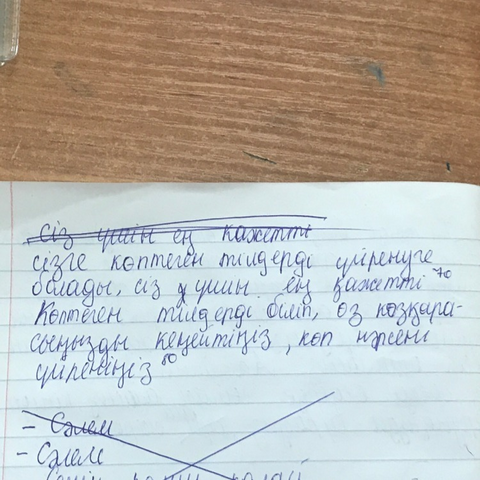 сіз үшін ең қажетті
сізге көптеген тілдерді үйренуге
болады, сіз үшін ең қажетті 70
Көптеген тілдерді біліп, өз көзқара-
сыңызды кеңейтіңіз, көп нәрсені
үйреніңіз 80
- Сәлем
- Сәлем